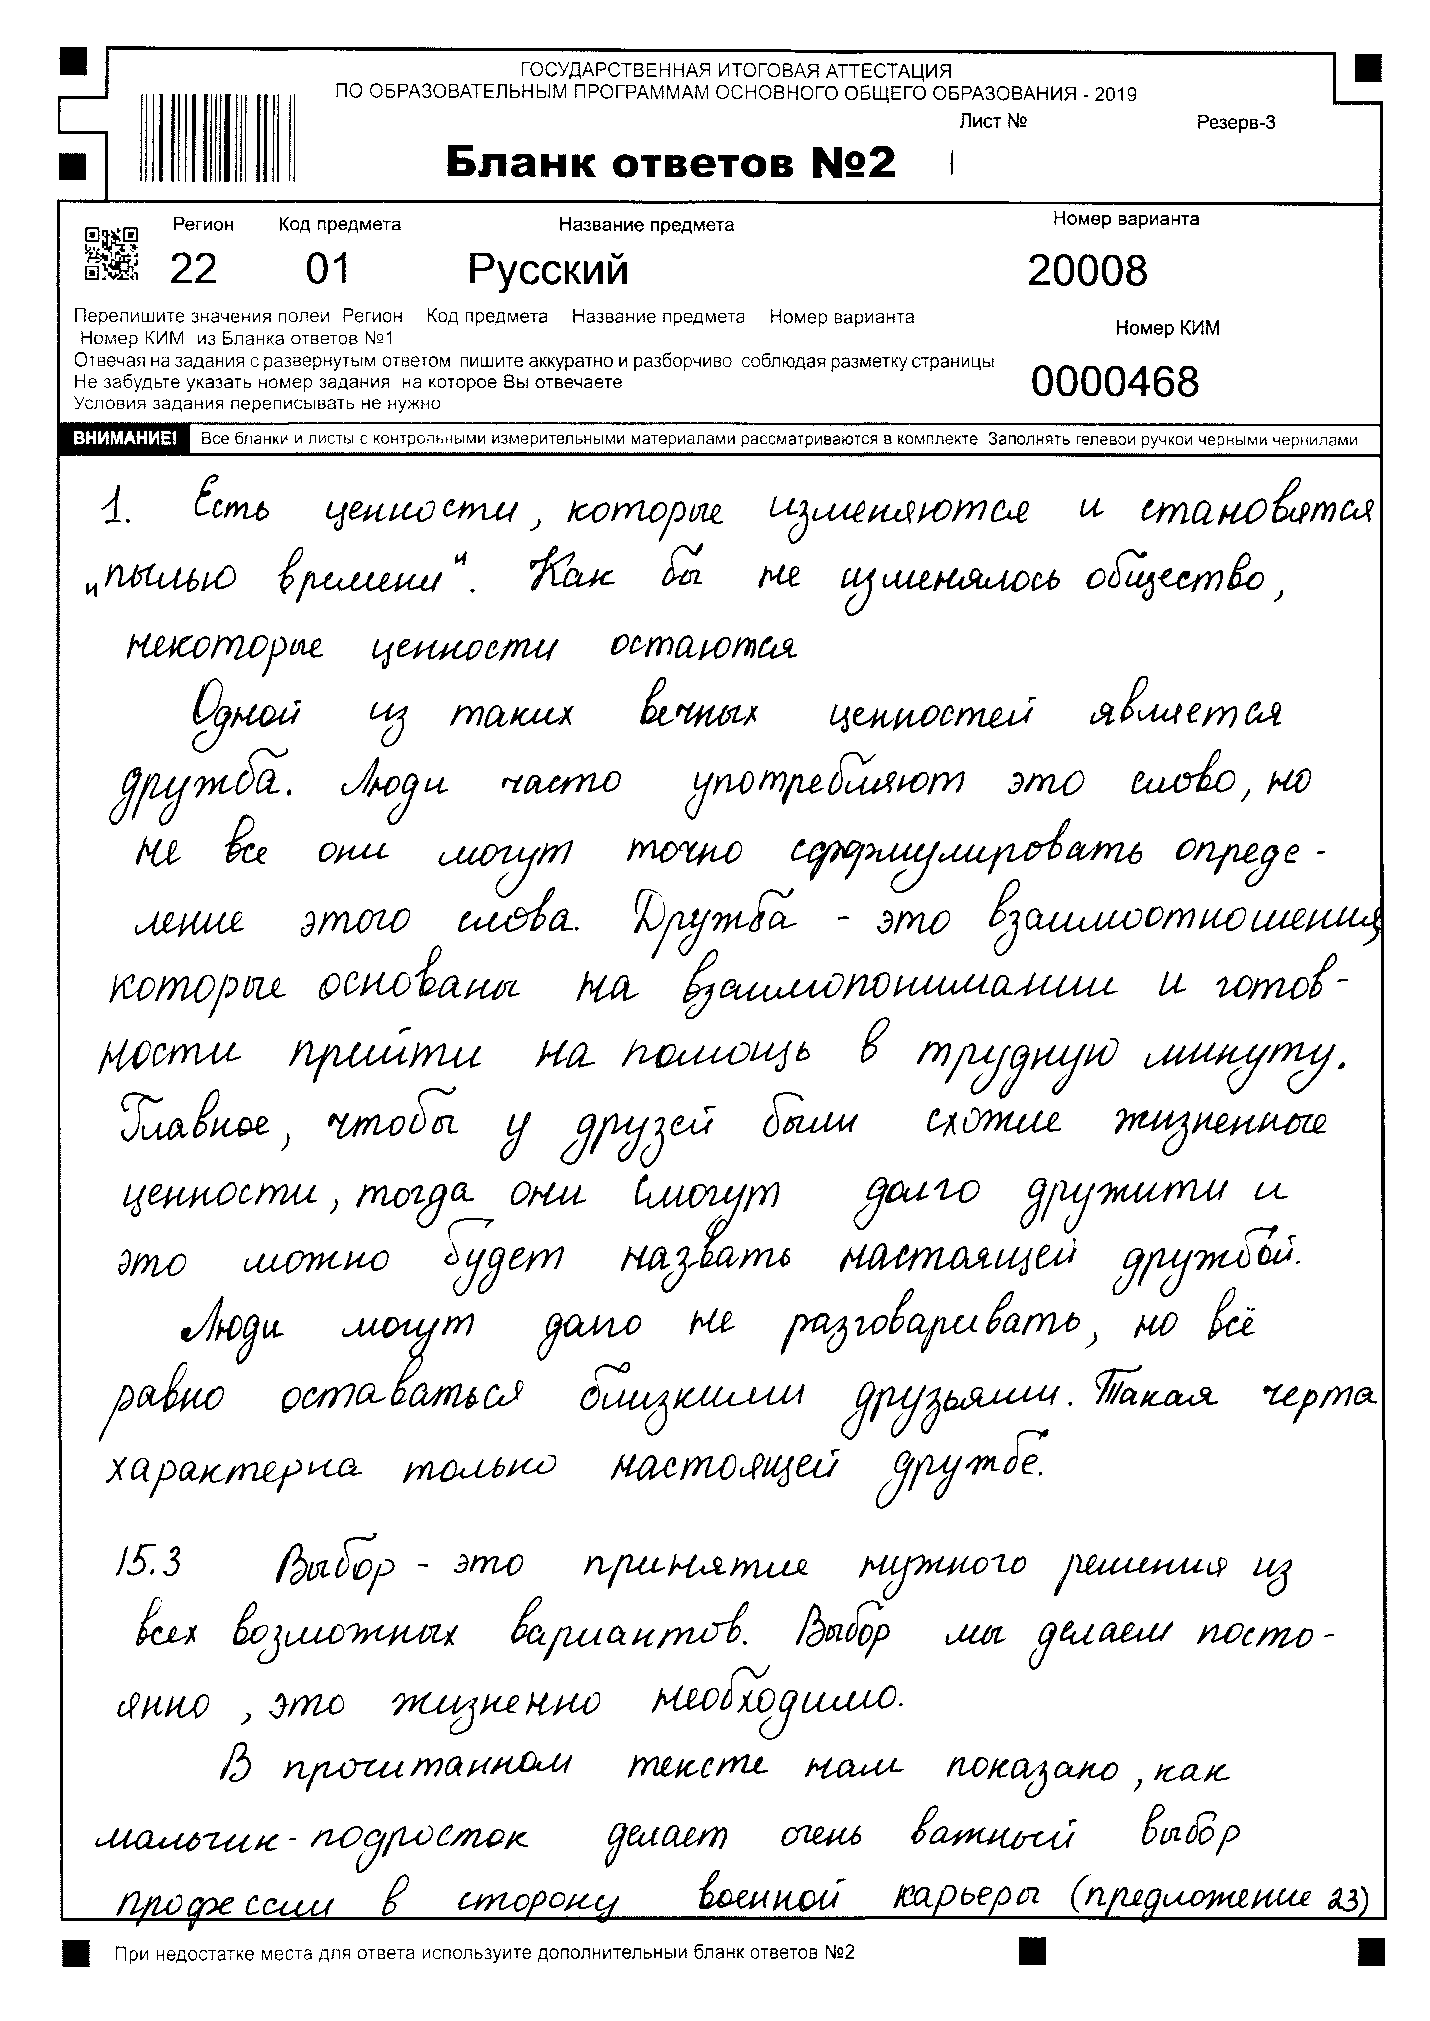 ГОСУДАРСТВЕННАЯ ИТОГОВАЯ АТТЕСТАЦИЯ
ПО ОБРАЗОВАТЕЛЬНЫМ ПРОГРАММАМ ОСНОВНОГО ОБЩЕГО ОБРАЗОВАНИЯ - 2019
Лист № Резерв-3
Бланк ответов №2 1
Регион Код предмета Название предмета Номер варианта
22 01 Русский 20008
Перепишите значения полеи Регион Код предмета Название предмета Номер варианта
Номер КИМ из Бланка ответов №1 Номер КИМ
Отвечая на задания с развернутым ответом пишите аккуратно и разборчиво соблюдая разметку страницы
Не забудьте указать номер задания на которое Вы отвечаете 0000468
Условия задания переписывать не нужно
ВНИМАНИЕ! Все бланки и листы с контрольными измерительными материалами рассматриваются в комплекте Заполнять гелевои ручкои черными чернилами
1. Есть ценности, которые изменяются и становятся
„пылью времени". Как бы не изменялось общество,
некоторые ценности остаются
Одной из таких вечных ценностей является
дружба. Люди часто употребляют это слово, но
не все они могут точно сформулировать опреде-
ление этого слова. Дружба - это взаимоотношения,
которые основаны на взаимопонимании и готов-
ности прийти на помощь в трудную минуту.
Главное, чтобы у друзей были схожие жизненные
ценности, тогда они смогут долго дружити и
это можно будет назвать настоящей дружбой.
Люди могут долго не разговаривать, но всё
равно оставаться близкими друзьями. Такая черта
характерна только настоящей дружбе.
15.3 Выбор - это принятие нужного решения из
всех возможных вариантов. Выбор мы делаем посто-
янно, это жизненно необходимо.
В прочитанном тексте нам показано, как
мальчик-подросток делает очень важный выбор
профессии в сторону военной карьеры (предложение 23)
При недостатке места для ответа используите дополнительныи бланк ответов №2